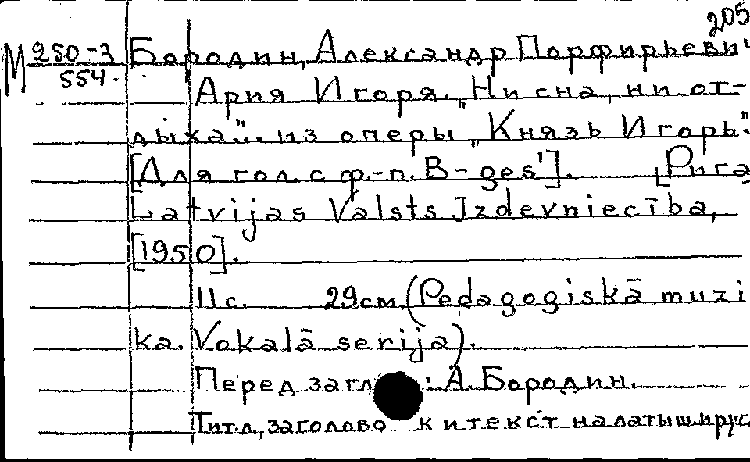 205
М 250-3
554.
Бородин, Александр Порфирьеви
Ария Игоря. „Ни сна, ни от-
дыха". из оперы „Князь Игорь".
[Для гол. с ф.-п. B-ges']. [Рига
Latvijas Valsts Izdevniecība,
[1950].
11 с. 29 см. (Pedagoģiskā muzi
ka. Vokalā serija).
Перед загл : А. Бородин.
Титл., заголово к и текст на латыш. и рус